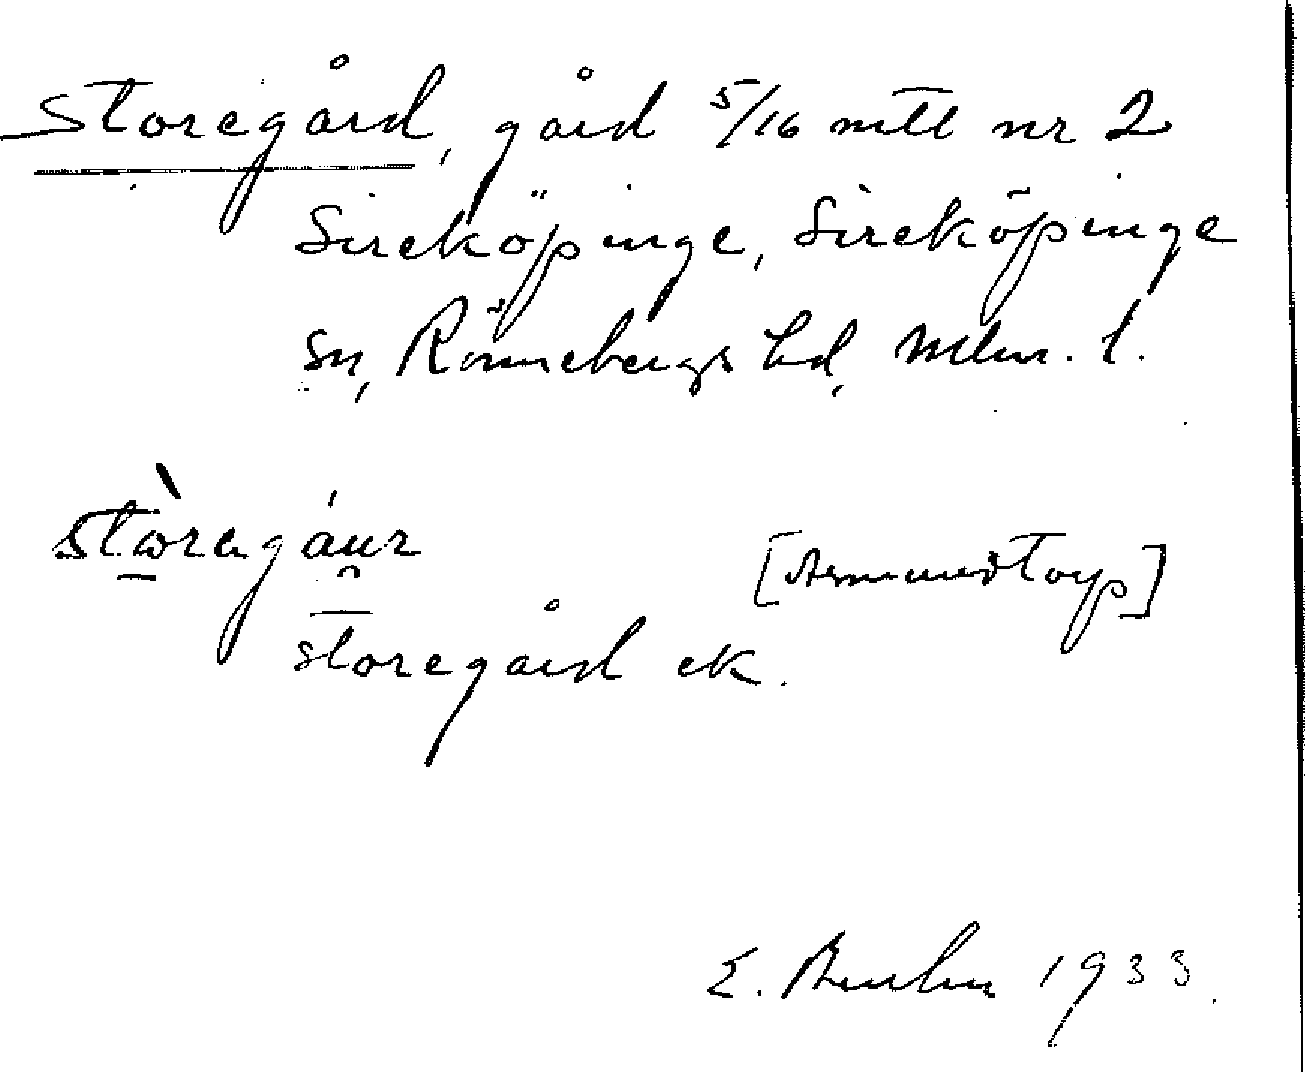 Storegård, gård 5/16 mtl nr 2
Sireköpinge, Sireköpinge
sn, Rönnebergs hd, Mlm. l.
stòragáur
[Asmundtorp]
storegård ek.
E. 1933.